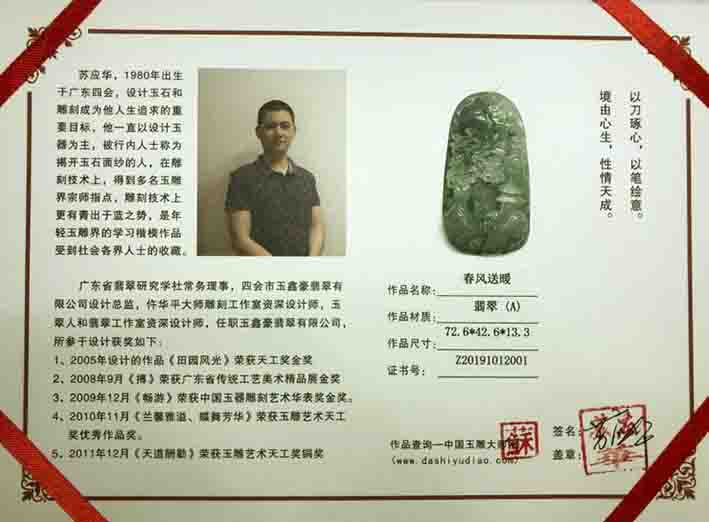 苏应华，1980年出生
于广东四会，设计玉石和
雕刻成为他人生追求的重
要目标，他一直以设计玉
器为主，被行内人士称为
揭开玉石面纱的人，在雕
刻技术上，得到多名玉雕
界宗师指点，雕刻技术上
更有青出于蓝之势，是年
轻玉雕界的学习楷模作品
受到社会各界人士的收藏。
广东省翡翠研究学社常务理事，四会市玉鑫豪翡翠有
限公司设计总监，仵华平大师雕刻工作室资深设计师，玉
翠人和翡翠工作室资深设计师，任职玉鑫豪翡翠有限公司，
所参于设计获奖如下：
1、2005年设计的作品《田园风光》荣获天工奖金奖
2、2008年9月《搏》荣获广东省传统工艺美术精品展金奖。
3、2009年12月《畅游》荣获中国玉器雕刻艺术华表奖金奖。
4、2010年11月《兰馨雅溢、蝶舞芳华》荣获玉雕艺术天工
奖优秀作品奖。
5、2011年12月《天道酬勤》荣获玉雕艺术天工奖铜奖
以刀琢心，以笔绘意。
境由心生，性情天成。
作品名称：春风送暖
作品材质：翡翠（A）
作品尺寸：72.6*42.6*13.3
证书号：Z20191012001
作品查询—中国玉雕大师网
(www.dashiyudiao.com)
蘇
签名：
盖章：